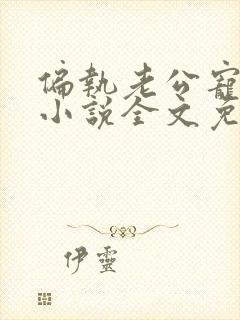 偏執老公寵
小說全文免
伊靈